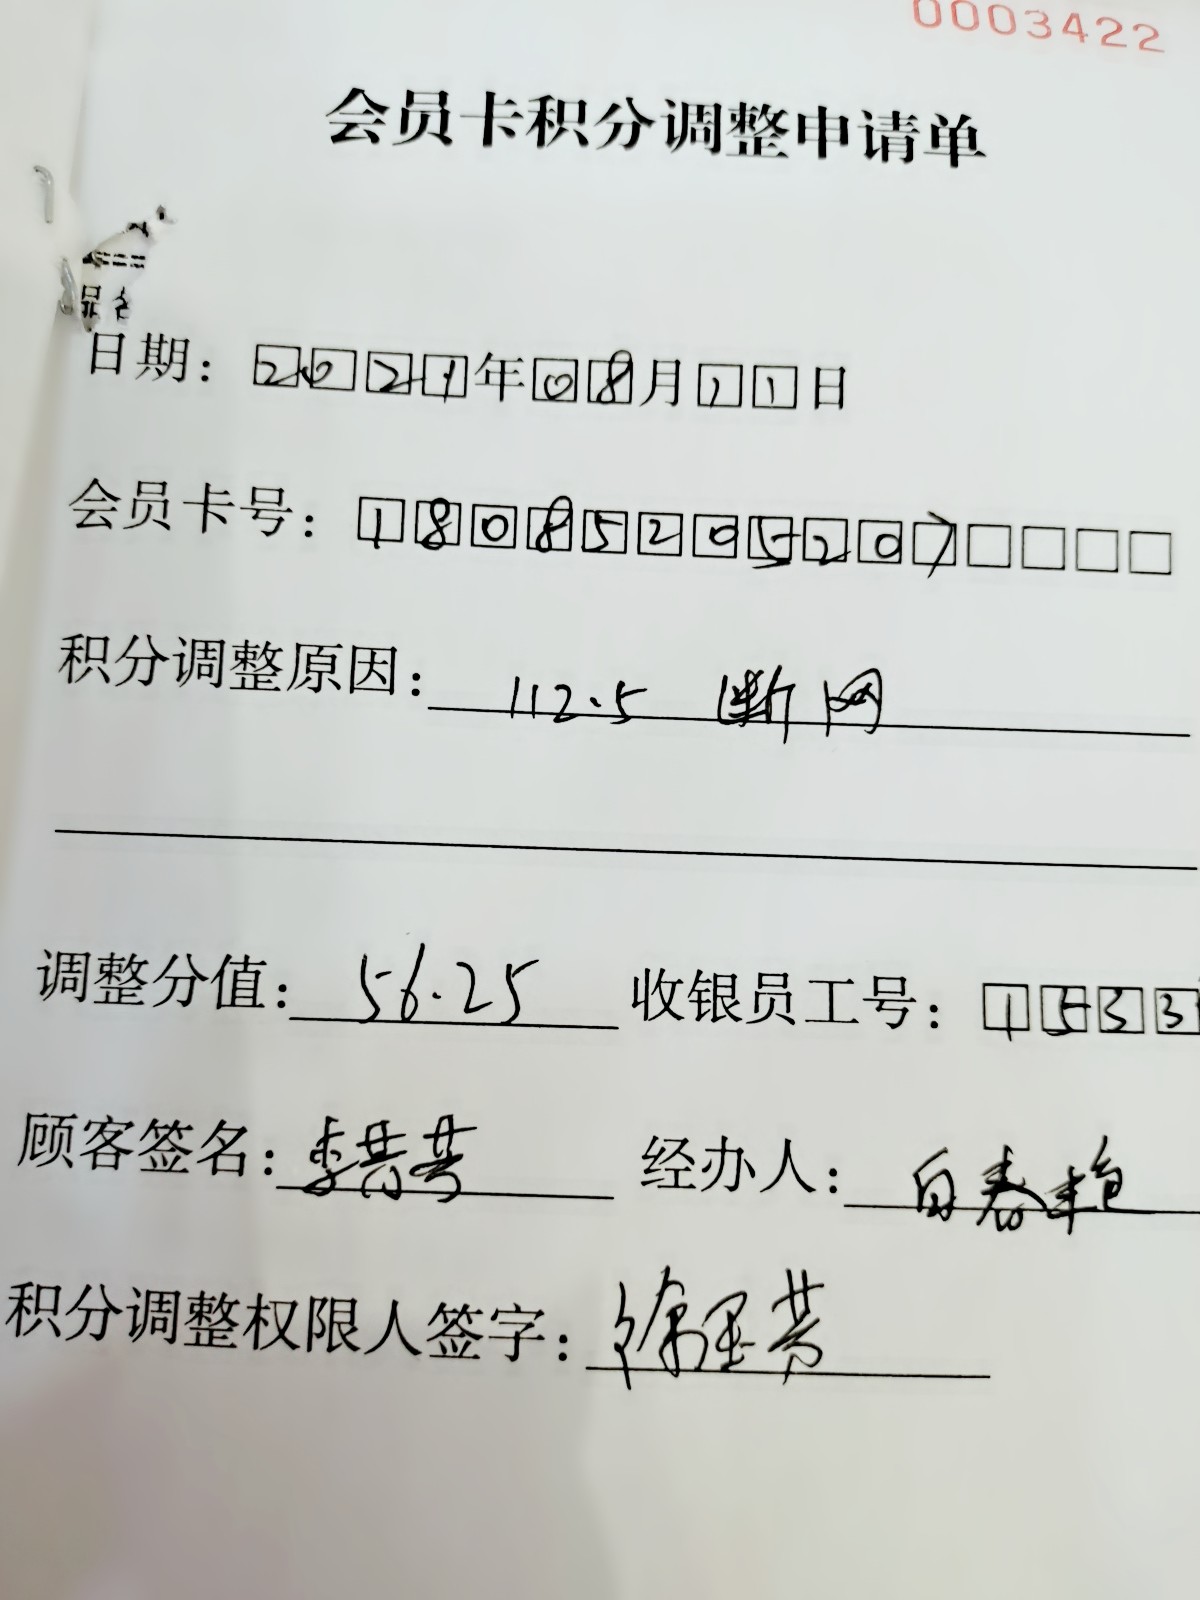 0003422
会员卡积分调整申请单
品名
日期：2021年08月11日
会员卡号：18085205207
积分调整原因：112.5 断网
调整分值：56.25 收银员工号：1533
顾客签名：李芳芳 经办人：白春艳
积分调整权限人签字：徐